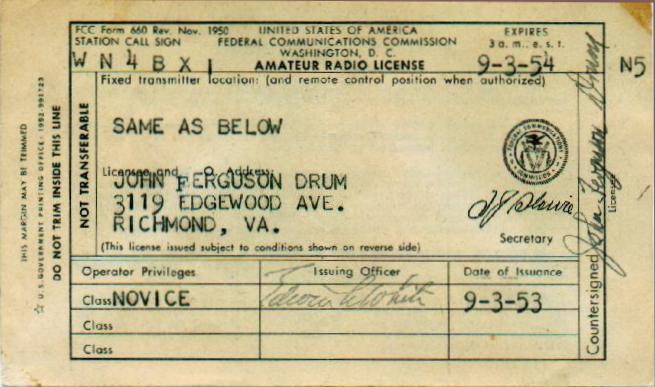 FCC Form 660 Rev. Nov. 1950
UNITED STATES OF AMERICA
EXPIRES
STATION CALL SIGN
FEDERAL COMMUNICATIONS COMMISSION
3 a. m., e. s. t.
WASHINGTON, D. C.
WN4BXI
AMATEUR RADIO LICENSE
9-3-54
N5
Fixed transmitter location: (and remote control position when authorized)
SAME AS BELOW
Licensee and Address
JOHN FERGUSON DRUM
3119 EDGEWOOD AVE.
RICHMOND, VA.
Secretary
(This license issued subject to conditions shown on reverse side)
Operator Privileges
Issuing Officer
Date of Issuance
Class NOVICE
9-3-53
Class
Class
NOT TRANSFERABLE
DO NOT TRIM INSIDE THIS LINE
☆ U. S. GOVERNMENT PRINTING OFFICE: 1952-991723
THIS MARGIN MAY BE TRIMMED
Countersigned John Ferguson Drum
Licensee
FEDERAL COMMUNICATIONS COMMISSION